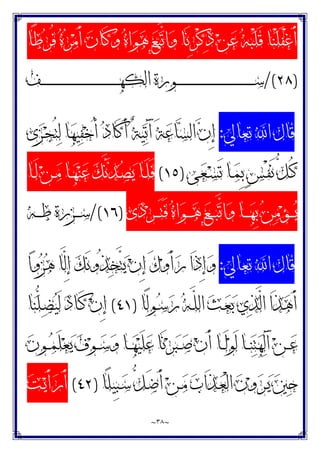 أَغْفَلْنَا قَلْبَهُ عَنْ ذِكْرِنَا وَاتَّبَعَ هَوَاهُ وَكَانَ أَمْرُهُ فُرُطًا
(٢٨)/ســـورة الكهـــف
قال الله تعالى: إِنَّ السَّاعَةَ آتِيَةٌ أَكَادُ أُخْفِيهَا لِتُجْزَىٰ
كُلُّ نَفْسٍ بِمَا تَسْعَىٰ (١٥) فَلَا يَصُدَّنَّكَ عَنْهَا مَنْ لَا
يُؤْمِنُ بِهَا وَاتَّبَعَ هَوَاهُ فَتَرْدَىٰ (١٦)/سورة طه
قال الله تعالى: وَإِذَا رَأَوْكَ إِنْ يَتَّخِذُونَكَ إِلَّا هُزُوًا
أَهَٰذَا الَّذِي بَعَثَ اللَّهُ رَسُولًا (٤١) إِنْ كَادَ لَيُضِلُّنَا
عَنْ آلِهَتِنَا لَوْلَا أَنْ صَبَرْنَا عَلَيْهَا وَسَوْفَ يَعْلَمُونَ
حِينَ يَرَوْنَ الْعَذَابَ مَنْ أَضَلُّ سَبِيلًا (٤٢) أَرَأَيْتَ
~٣٨~